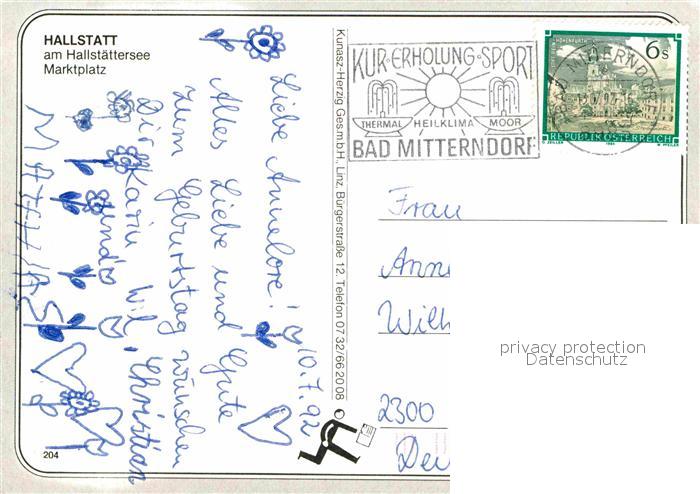 HALLSTATT
am Hallstättersee
Marktplatz
10.7.92
Liebe Annelore!
Alles Liebe und Gute
zum Geburtstag wünschen
Dir Karin, Christian
und
MATHIAS
204
Kunasz-Herzig Ges.m.b.H., Linz, Bürgerstraße 12, Telefon 07 32/66 20 08
KUR·ERHOLUNG·SPORT
THERMAL HEILKLIMA MOOR
BAD MITTERNDORF
6 S
REPUBLIK ÖSTERREICH
Frau
Ann
Wilh
2300
privacy protection
Datenschutz